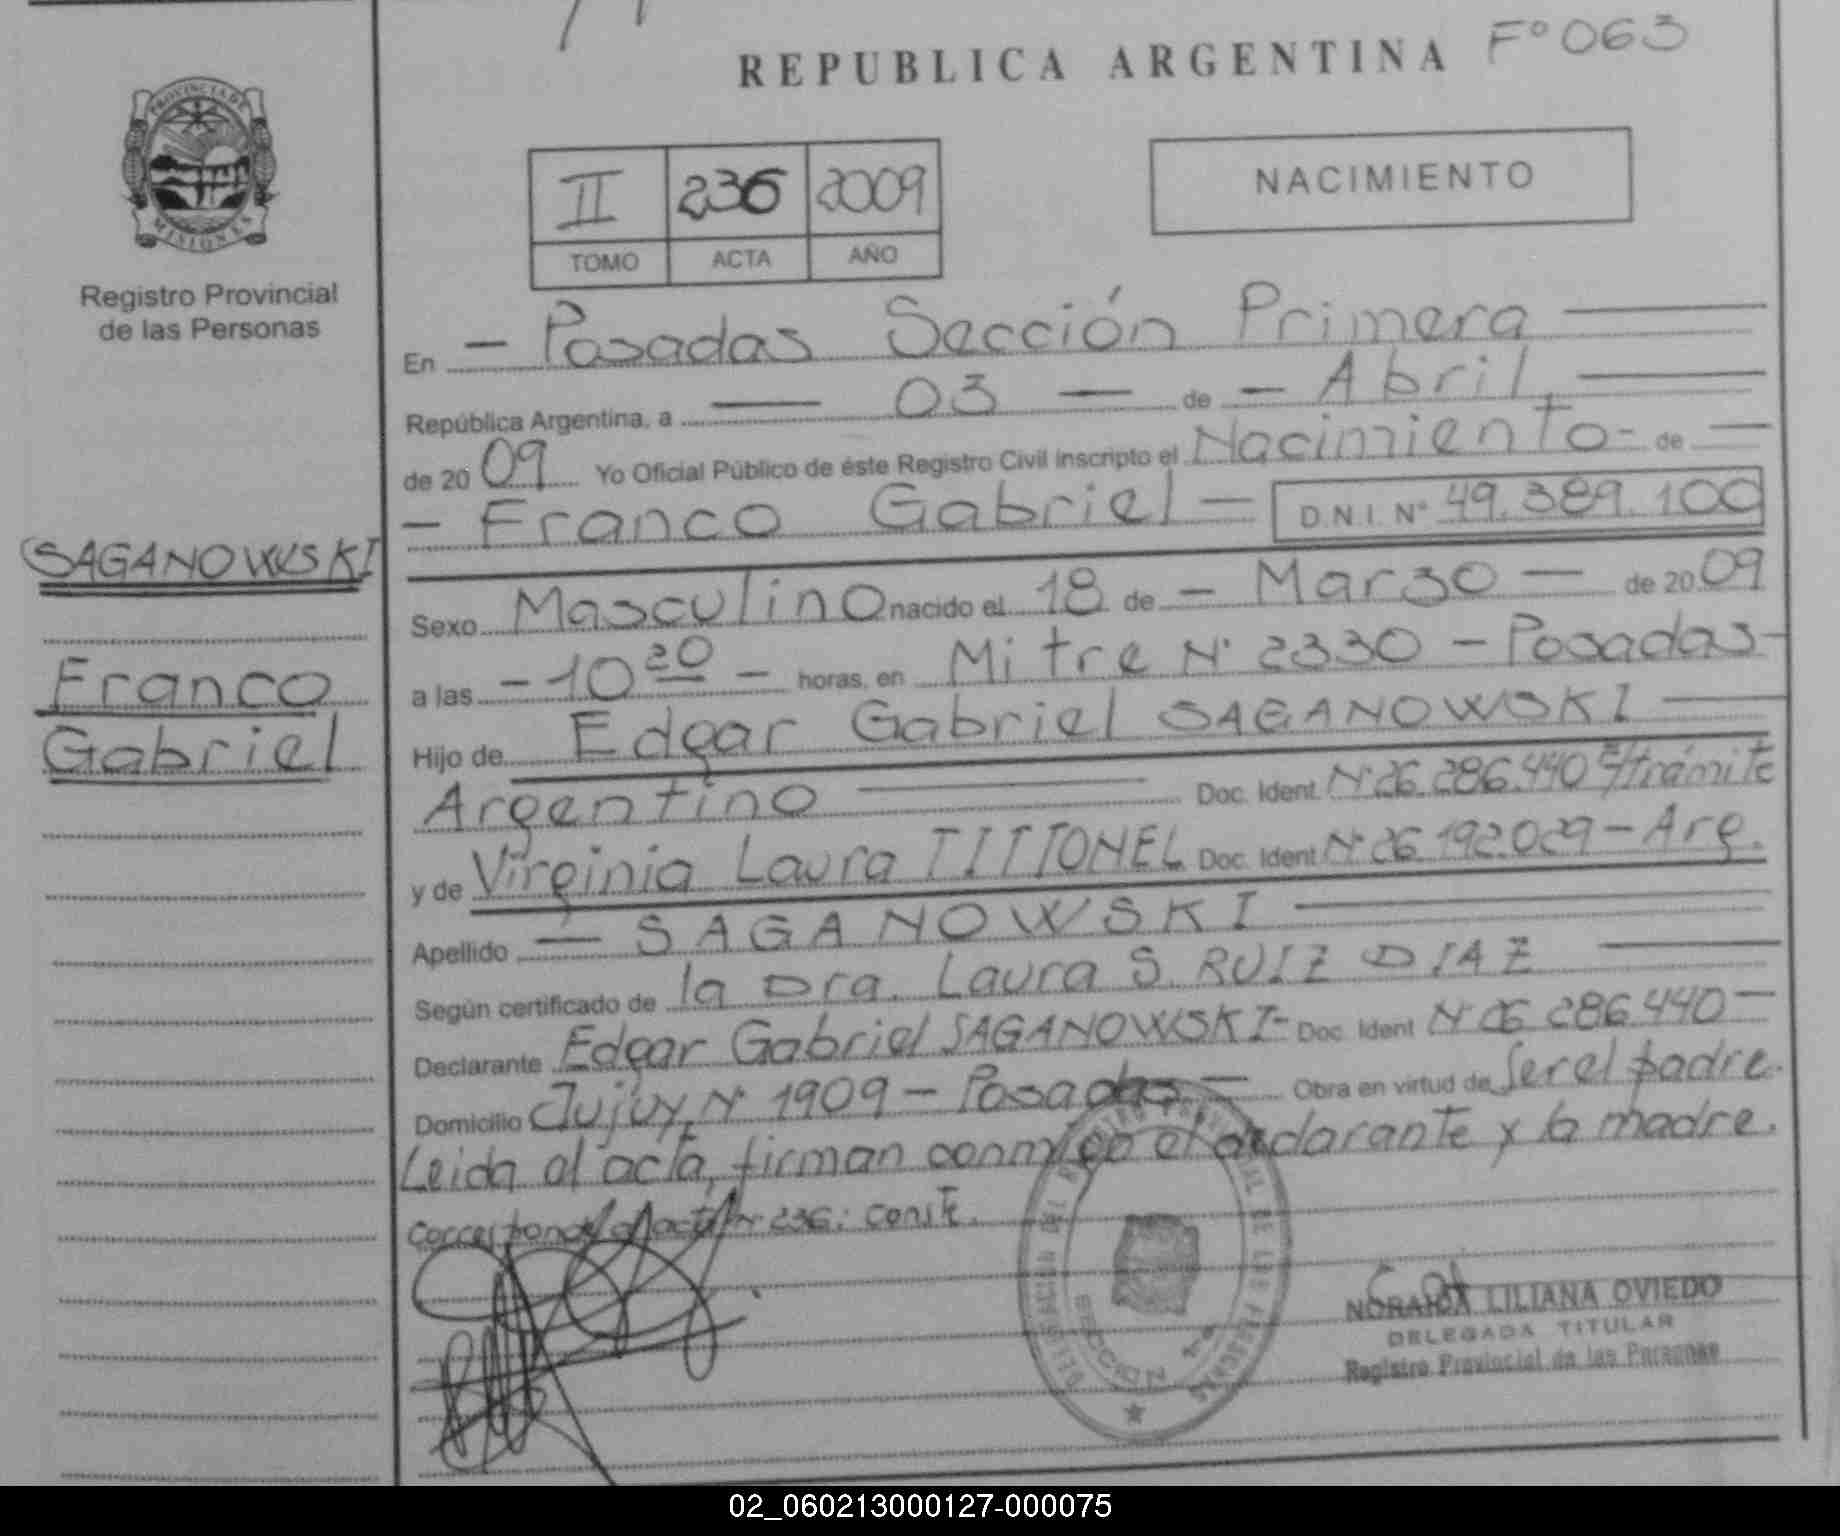 REPUBLICA ARGENTINA F° 063
PROVINCIA DE
MISIONES
Registro Provincial
de las Personas
II 236 2009
TOMO ACTA AÑO
NACIMIENTO
En — Posadas Sección Primera —
República Argentina, a — 03 — de — Abril, —
de 20 09 Yo Oficial Público de éste Registro Civil inscripto el Nacimiento - de —
— Franco Gabriel — D.N.I. N° 49.389.100
SAGANOWSKI
Franco
Gabriel
Sexo Masculino nacido el 18 de — Marzo — de 20 09
a las - 10 20 - horas, en Mitre N° 2330 - Posadas -
Hijo de Edgar Gabriel SAGANOWSKI —
Argentino — Doc. Ident. N° 26.286.440 E/trámite
y de Virginia Laura TITTONEL Doc. Ident N° 26.192.029 - Arg.
Apellido — SAGANOWSKI —
Según certificado de la Dra. Laura S. RUIZ DIAZ —
Declarante Edgar Gabriel SAGANOWSKI - Doc. Ident N° 26.286.440 —
Domicilio Jujuy N° 1909 - Posadas — Obra en virtud de Ser el padre.
Leida el acta, firman conmigo el declarante y la madre.
Corresponde al acta N° 236: conste.
REGISTRO PROVINCIAL DE LAS PERSONAS
DELEGACION DEL
SECCION 1a
NORAIDA LILIANA OVIEDO
DELEGADA TITULAR
Registro Provincial de las Personas
02_060213000127-000075